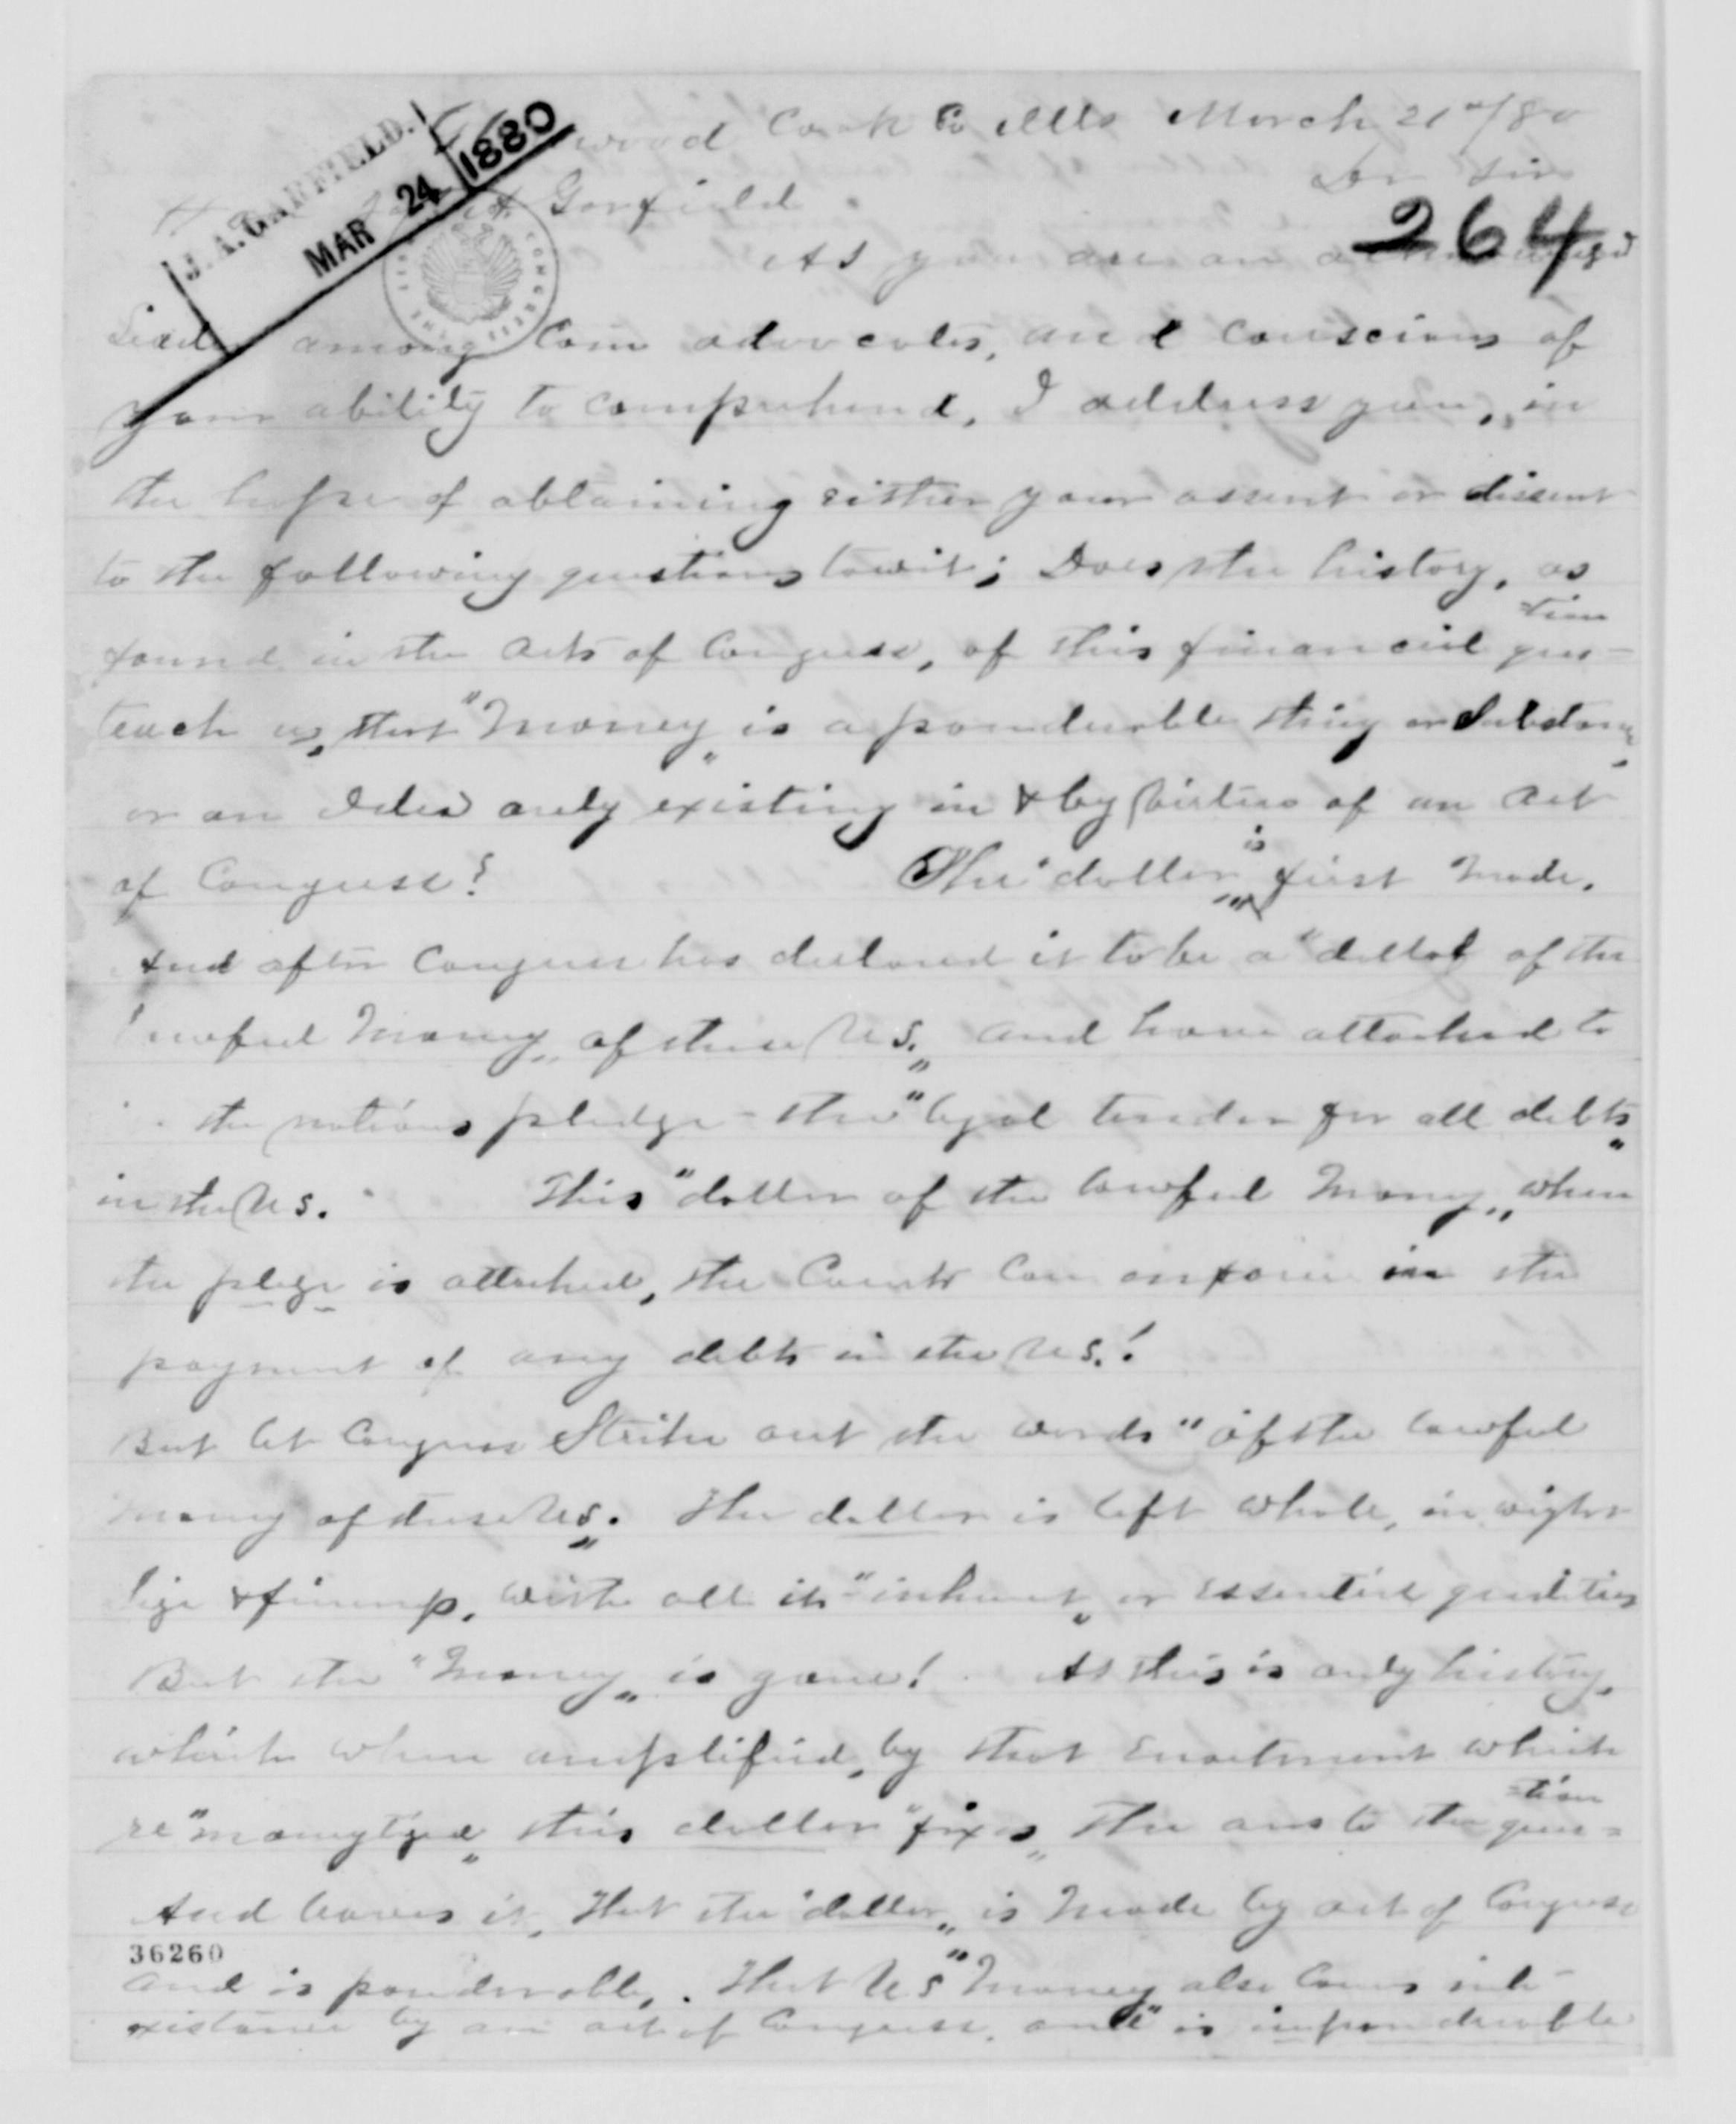 J. A. GARFIELD.
MAR 24 1880
wood Cook Co Ills March 21st/80
Garfield
Dr Sir
264
As you are an
Leader among Coin advocates, and conscious of
your ability to comprehend, I address you, in
the hope of obtaining either your assent or dissent
to the following questions towit; Does the history, as
found in the acts of Congress, of this financial ques=tion
teach us, that "Money" is a ponderable thing or substance,
or an Idea only existing in & by virtue of an act
of Congress? The "dollar" is first made.
And after Congress has declared it to be a "dollar of the
lawful money" of these U.S." and have attached to
the nations pledge - the "legal tender for all debts"
in the U.S. This "dollar of the lawful money" when
the plege is attached, the Courts can enforce in the
payment of any debts in the U.S.!
But let Congress Strike out the words "of the lawful
money of these U.S." The dollar is left whole, in wight
Size & , with all its "inherent" or essential qualities
But the "money" is gone! As this is only history,
which when amplified, by that Enactment which
re"moneytized" this dollar "fixes" the ans to the ques=tion
And leaves it, That the "dollar" is made by act of Congress
36260
and is ponderable. That U S "money also comes into
existance by an act of Congress, and" is imponderable